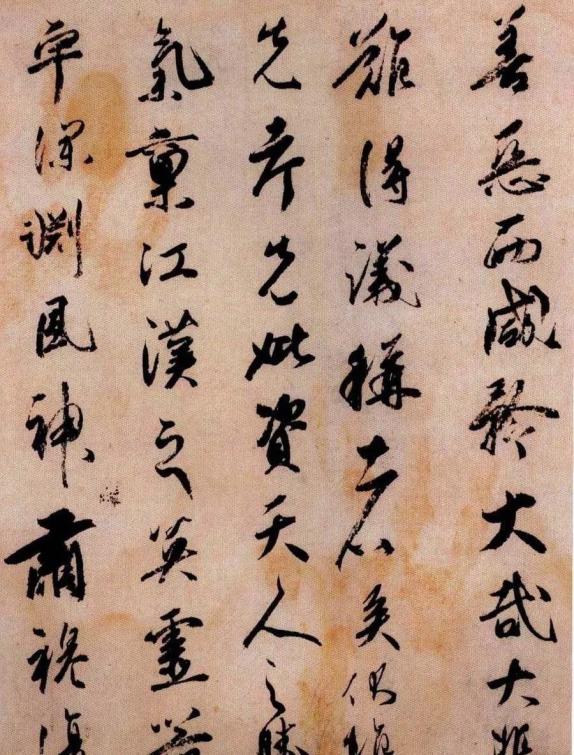 善惡而咸矜大哉大
難得議稱者矣仰惟
先考先妣資天人之勝
氣稟江漢之英靈
深淵風神肅穆